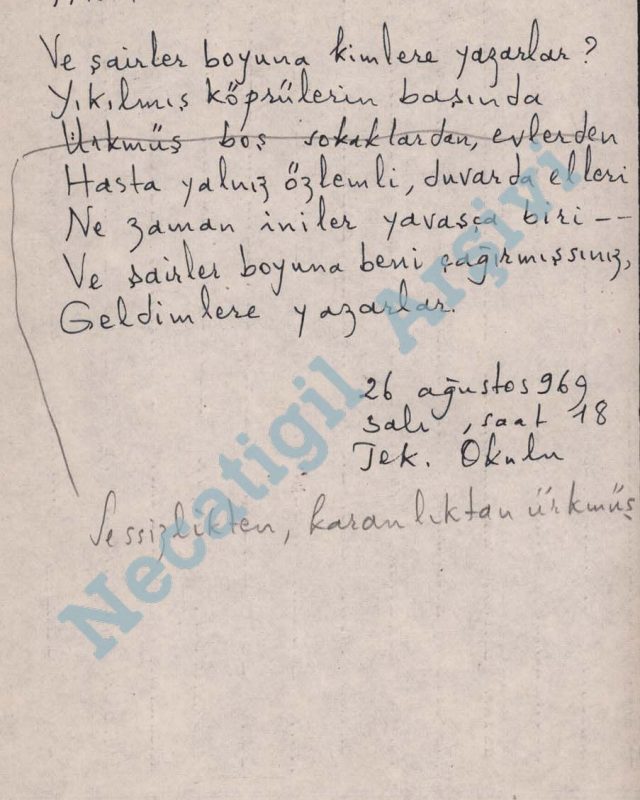 Ve şairler boyuna kimlere yazarlar?
Yıkılmış köprülerin başında
Ürkmüş boş sokaklardan, evlerden
Hasta yalnız özlemli, duvarda elleri
Ne zaman iniler yavaşça biri --
Ve şairler boyuna beni çağırmışsınız,
Geldimlere yazarlar.
26 ağustos 969
Salı, saat 18
Tek. Okulu
Sessizlikten, karanlıktan ürkmüş
Necatigil Arşivi